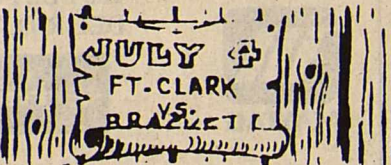 JULY 4
FT. CLARK
VS.
BRACKETT